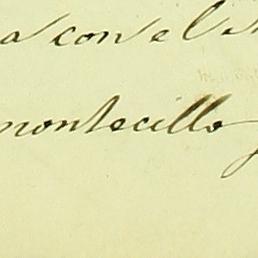 a con el
montecillo